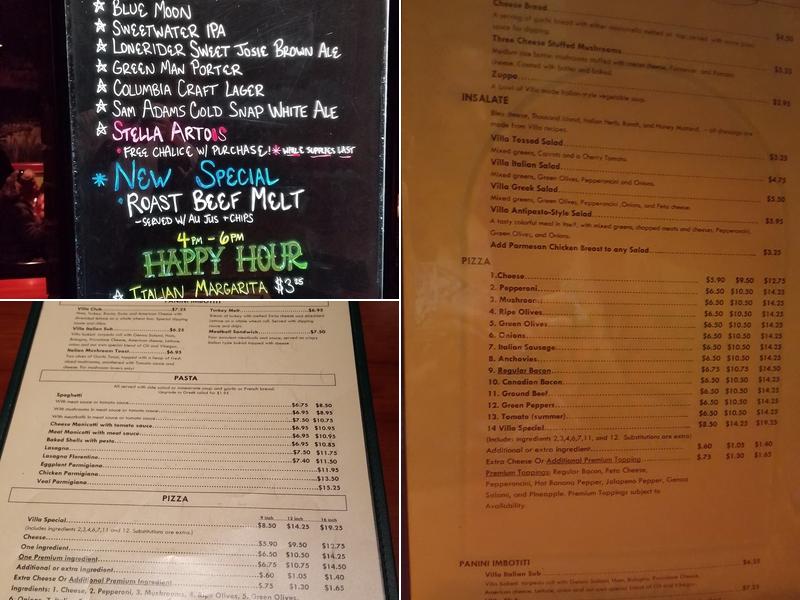 ☆ BLUE MOON
☆ SWEETWATER IPA
☆ LONERIDER SWEET JOSIE BROWN ALE
☆ GREEN MAN PORTER
☆ COLUMBIA CRAFT LAGER
☆ SAM ADAMS COLD SNAP WHITE ALE
☆ STELLA ARTOIS
• FREE CHALICE W/ PURCHASE! * WHILE SUPPLIES LAST
* NEW SPECIAL
• ROAST BEEF MELT
- SERVED W/ AU JUS + CHIPS
4PM - 6PM
HAPPY HOUR
☆ ITALIAN MARGARITA $3.25
PANINI IMBOTITI
Villa Club $7.25
Villa Italian Sub $6.25
Italian Mushroom Toast $6.95
Turkey Melt $6.95
Meatball Sandwich $7.50
PASTA
All served with side salad or minestrone soup and garlic or French bread.
Upgrade to Greek salad for $1.95
Spaghetti
With meat sauce or tomato sauce $6.75 $8.50
With mushrooms in meat sauce or tomato sauce $6.95 $8.95
With meatballs in meat sauce or tomato sauce $7.50 $10.75
Cheese Manicotti with tomato sauce $6.95 $10.95
Meat Manicotti with meat sauce $6.95 $10.95
Baked Shells with pesto $6.95 $10.85
Lasagna $7.50 $11.75
Lasagna Florentine $7.40 $11.50
Eggplant Parmigiana $11.95
Chicken Parmigiana $13.50
Veal Parmigiana $15.25
PIZZA
9 inch 12 inch 16 inch
Villa Special $8.50 $14.25 $19.25
(Includes ingredients 2,3,4,6,7,11 and 12. Substitutions are extra.)
Cheese $5.90 $9.50 $12.75
One ingredient $6.50 $10.50 $14.25
One Premium ingredient $6.75 $10.75 $14.50
Additional or extra ingredient $.60 $1.05 $1.40
Extra Cheese Or Additional Premium Ingredient $.75 $1.30 $1.65
Ingredients: 1. Cheese, 2. Pepperoni, 3. Mushrooms, 4. Ripe Olives, 5. Green Olives,
Cheese Bread $4.50
Three Cheese Stuffed Mushrooms $5.25
Zuppa $2.95
A bowl of Villa made Italian-style vegetable soup.
INSALATE
Bleu cheese, Thousand Island, Italian Herb, Ranch, and Honey Mustard. - all dressings are
made from Villa recipes.
Villa Tossed Salad $3.25
Mixed greens, Carrots and a Cherry Tomato.
Villa Italian Salad $4.75
Mixed greens, Green Olives, Pepperoncini and Onions.
Villa Greek Salad $5.50
Mixed greens, Green Olives, Pepperoncini, Onions, and Feta cheese.
Villa Antipasto-Style Salad $5.95
A tasty colorful meal in itself, with mixed greens, chopped meats and cheeses, Pepperoncini,
Green Olives, and Onions.
Add Parmesan Chicken Breast to any Salad $3.25
PIZZA
1. Cheese $5.90 $9.50 $12.75
2. Pepperoni $6.50 $10.50 $14.25
3. Mushroom $6.50 $10.50 $14.25
4. Ripe Olives $6.50 $10.50 $14.25
5. Green Olives $6.50 $10.50 $14.25
6. Onions $6.50 $10.50 $14.25
7. Italian Sausage $6.50 $10.50 $14.25
8. Anchovies $6.50 $10.50 $14.25
9. Regular Bacon $6.75 $10.75 $14.50
10. Canadian Bacon $6.50 $10.50 $14.25
11. Ground Beef $6.50 $10.50 $14.25
12. Green Peppers $6.50 $10.50 $14.25
13. Tomato (summer) $6.50 $10.50 $14.25
14 Villa Special $8.50 $14.25 $19.25
(Includes ingredients 2,3,4,6,7,11, and 12. Substitutions are extra)
Additional or extra ingredient $.60 $1.05 $1.40
Extra Cheese Or Additional Premium Topping $.75 $1.30 $1.65
Premium Toppings: Regular Bacon, Feta Cheese,
Pepperoncini, Hot Banana Pepper, Jalapeno Pepper, Genoa
Salami, and Pineapple. Premium Toppings subject to
Availability.
PANINI IMBOTITI
Villa Italian Sub $6.25
$7.25